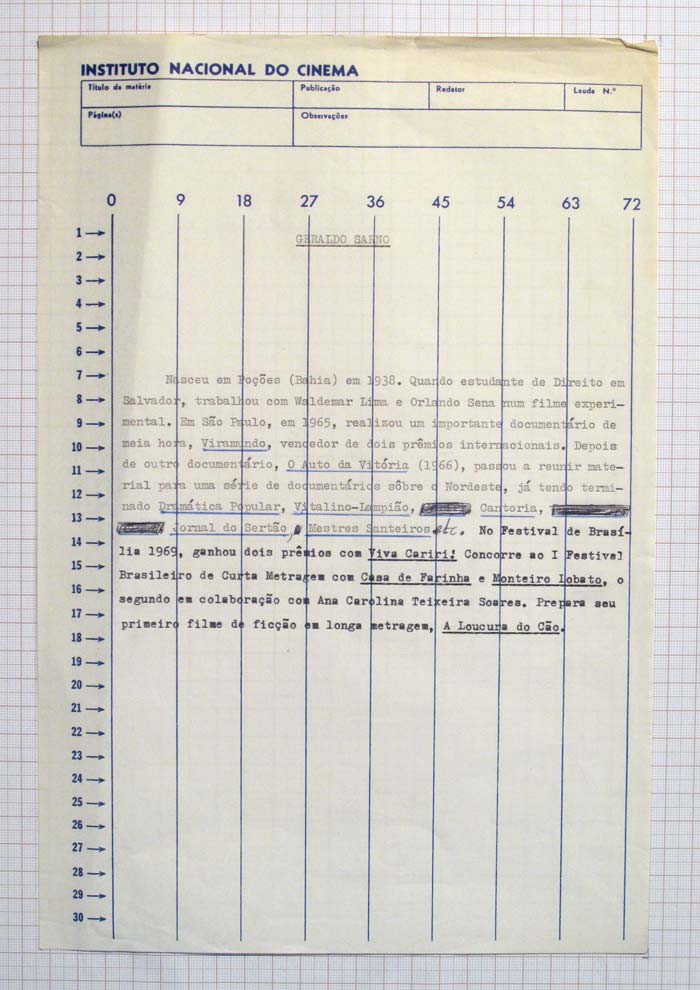 INSTITUTO NACIONAL DO CINEMA
Título da matéria Publicação Redator Lauda N.º
Página(s) Observações
0 9 18 27 36 45 54 63 72
1
GERALDO SARNO
2
3
4
5
6
7 Nasceu em Poções (Bahia) em 1938. Quando estudante de Direito em
8 Salvador, trabalhou com Waldemar Lima e Orlando Sena num filme experi-
9 mental. Em São Paulo, em 1965, realizou um importante documentário de
10 meia hora, Viramundo, vencedor de dois prêmios internacionais. Depois
11 de outro documentário, O Auto da Vitória (1966), passou a reunir mate-
12 rial para uma série de documentários sôbre o Nordeste, já tendo termi-
nado Dramática Popular, Vitalino-Lampião, Cantoria,
13 Jornal do Sertão, Mestres Santeiros etc. No Festival de Brasí-
14 lia 1969, ganhou dois prêmios com Viva Cariri! Concorre ao I Festival
15 Brasileiro de Curta Metragem com Casa de Farinha e Monteiro Lobato, o
16 segundo em colaboração com Ana Carolina Teixeira Soares. Prepara seu
17 primeiro filme de ficção em longa metragem, A Loucura do Cão.
18
19
20
21
22
23
24
25
26
27
28
29
30